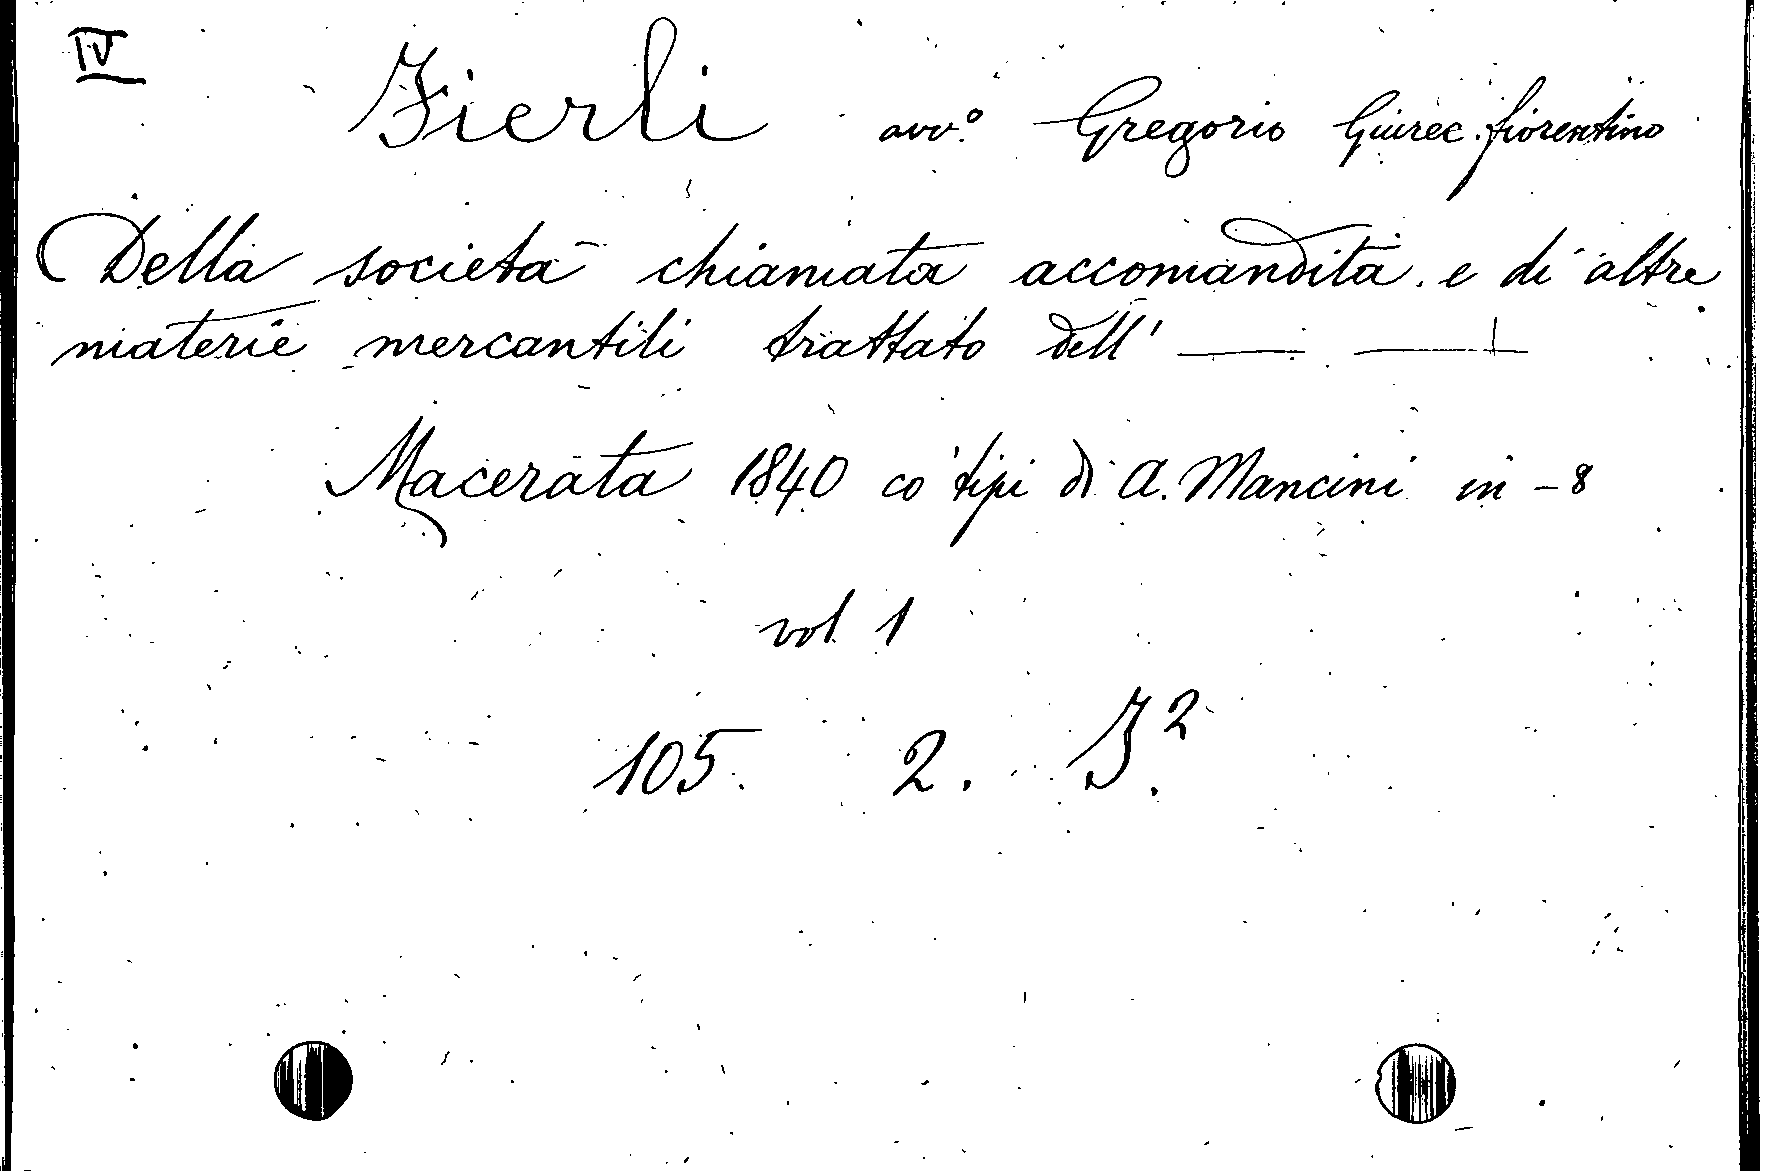 IV
Fierli avv.º Gregorio Giurec. fiorentino
Della società chiamata accomandita e di altre
materie mercantili trattato dell' —— ——
Macerata 1840 co' tipi di A. Mancini in-8
vol. 1
105. 2. I².